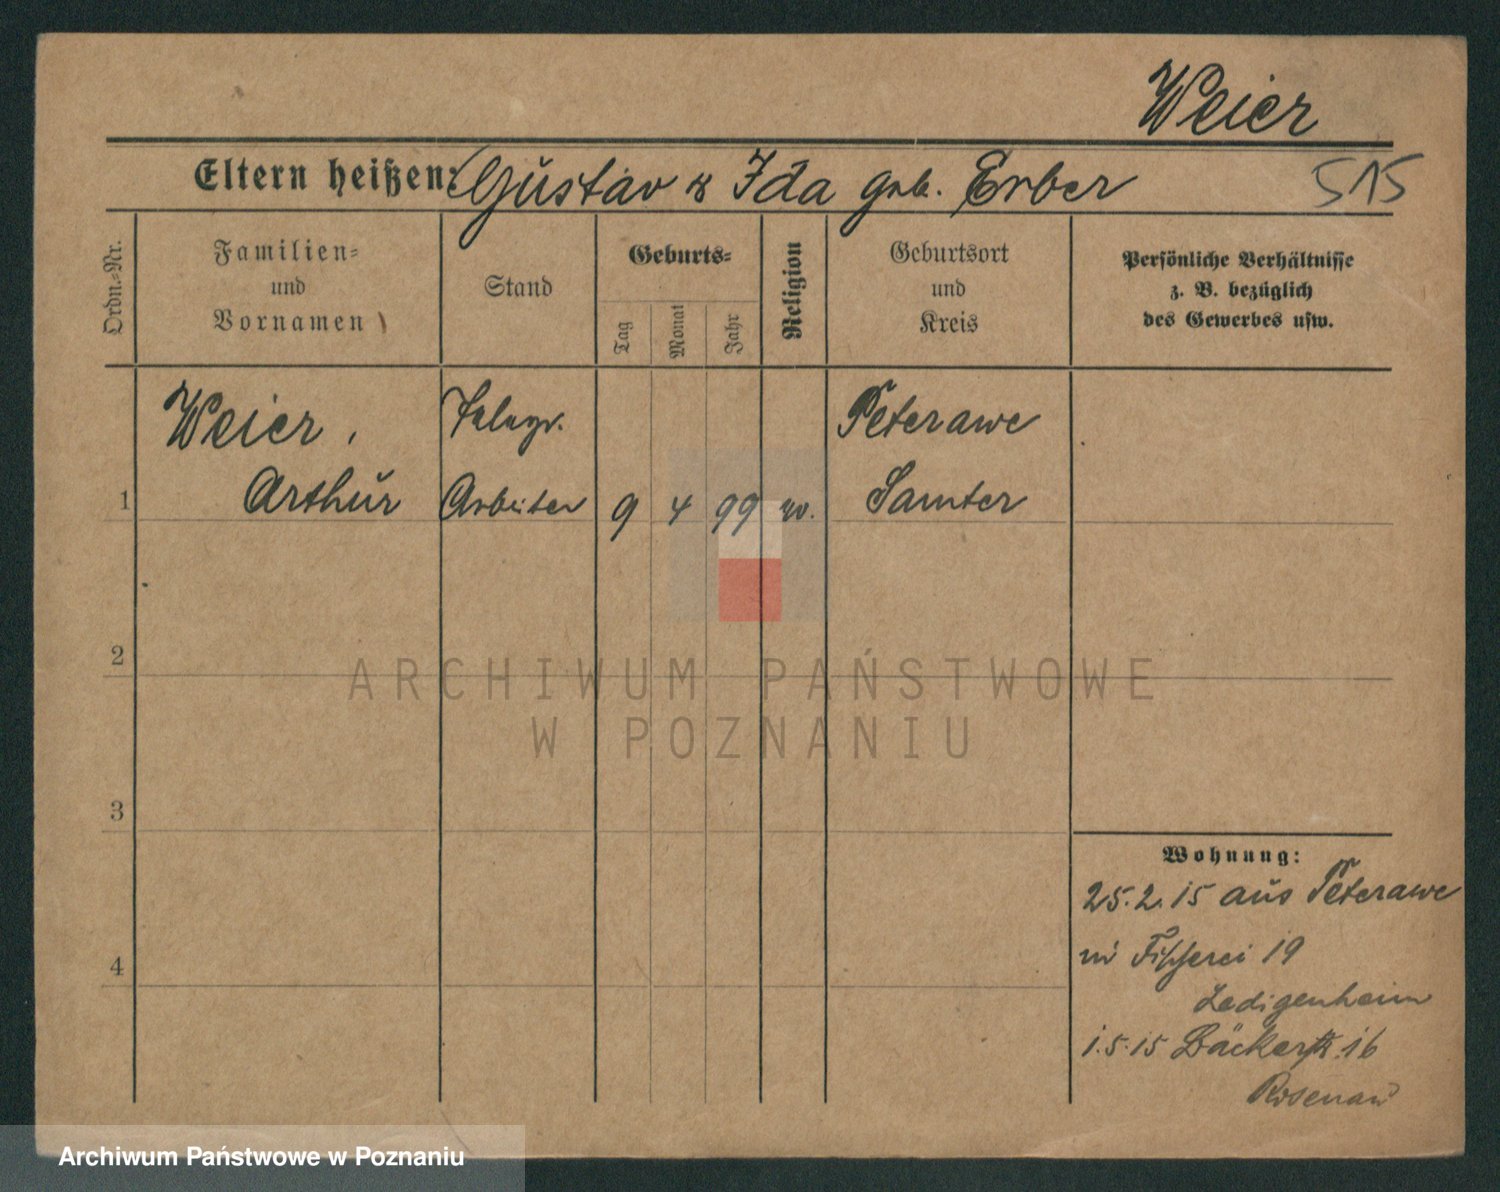 Weier
Eltern heißen: Gustav & Ida geb. Erber
515
Ordn.-Nr.
Familien-
und
Vornamen
Stand
Geburts-
Tag
Monat
Jahr
Religion
Geburtsort
und
Kreis
Persönliche Verhältnisse
z. B. bezüglich
des Gewerbes usw.
Weier,
Arthur
Telegr.
Arbeiter
1
9 4 99 ev.
Peterawe
Samter
2
3
4
ARCHIWUM PAŃSTWOWE
W POZNANIU
Wohnung:
25.2.15 aus Peterawe
Fischerei 19
Ledigenheim
1.5.15 Bäckerstr. 16
Rosenau
Archiwum Państwowe w Poznaniu